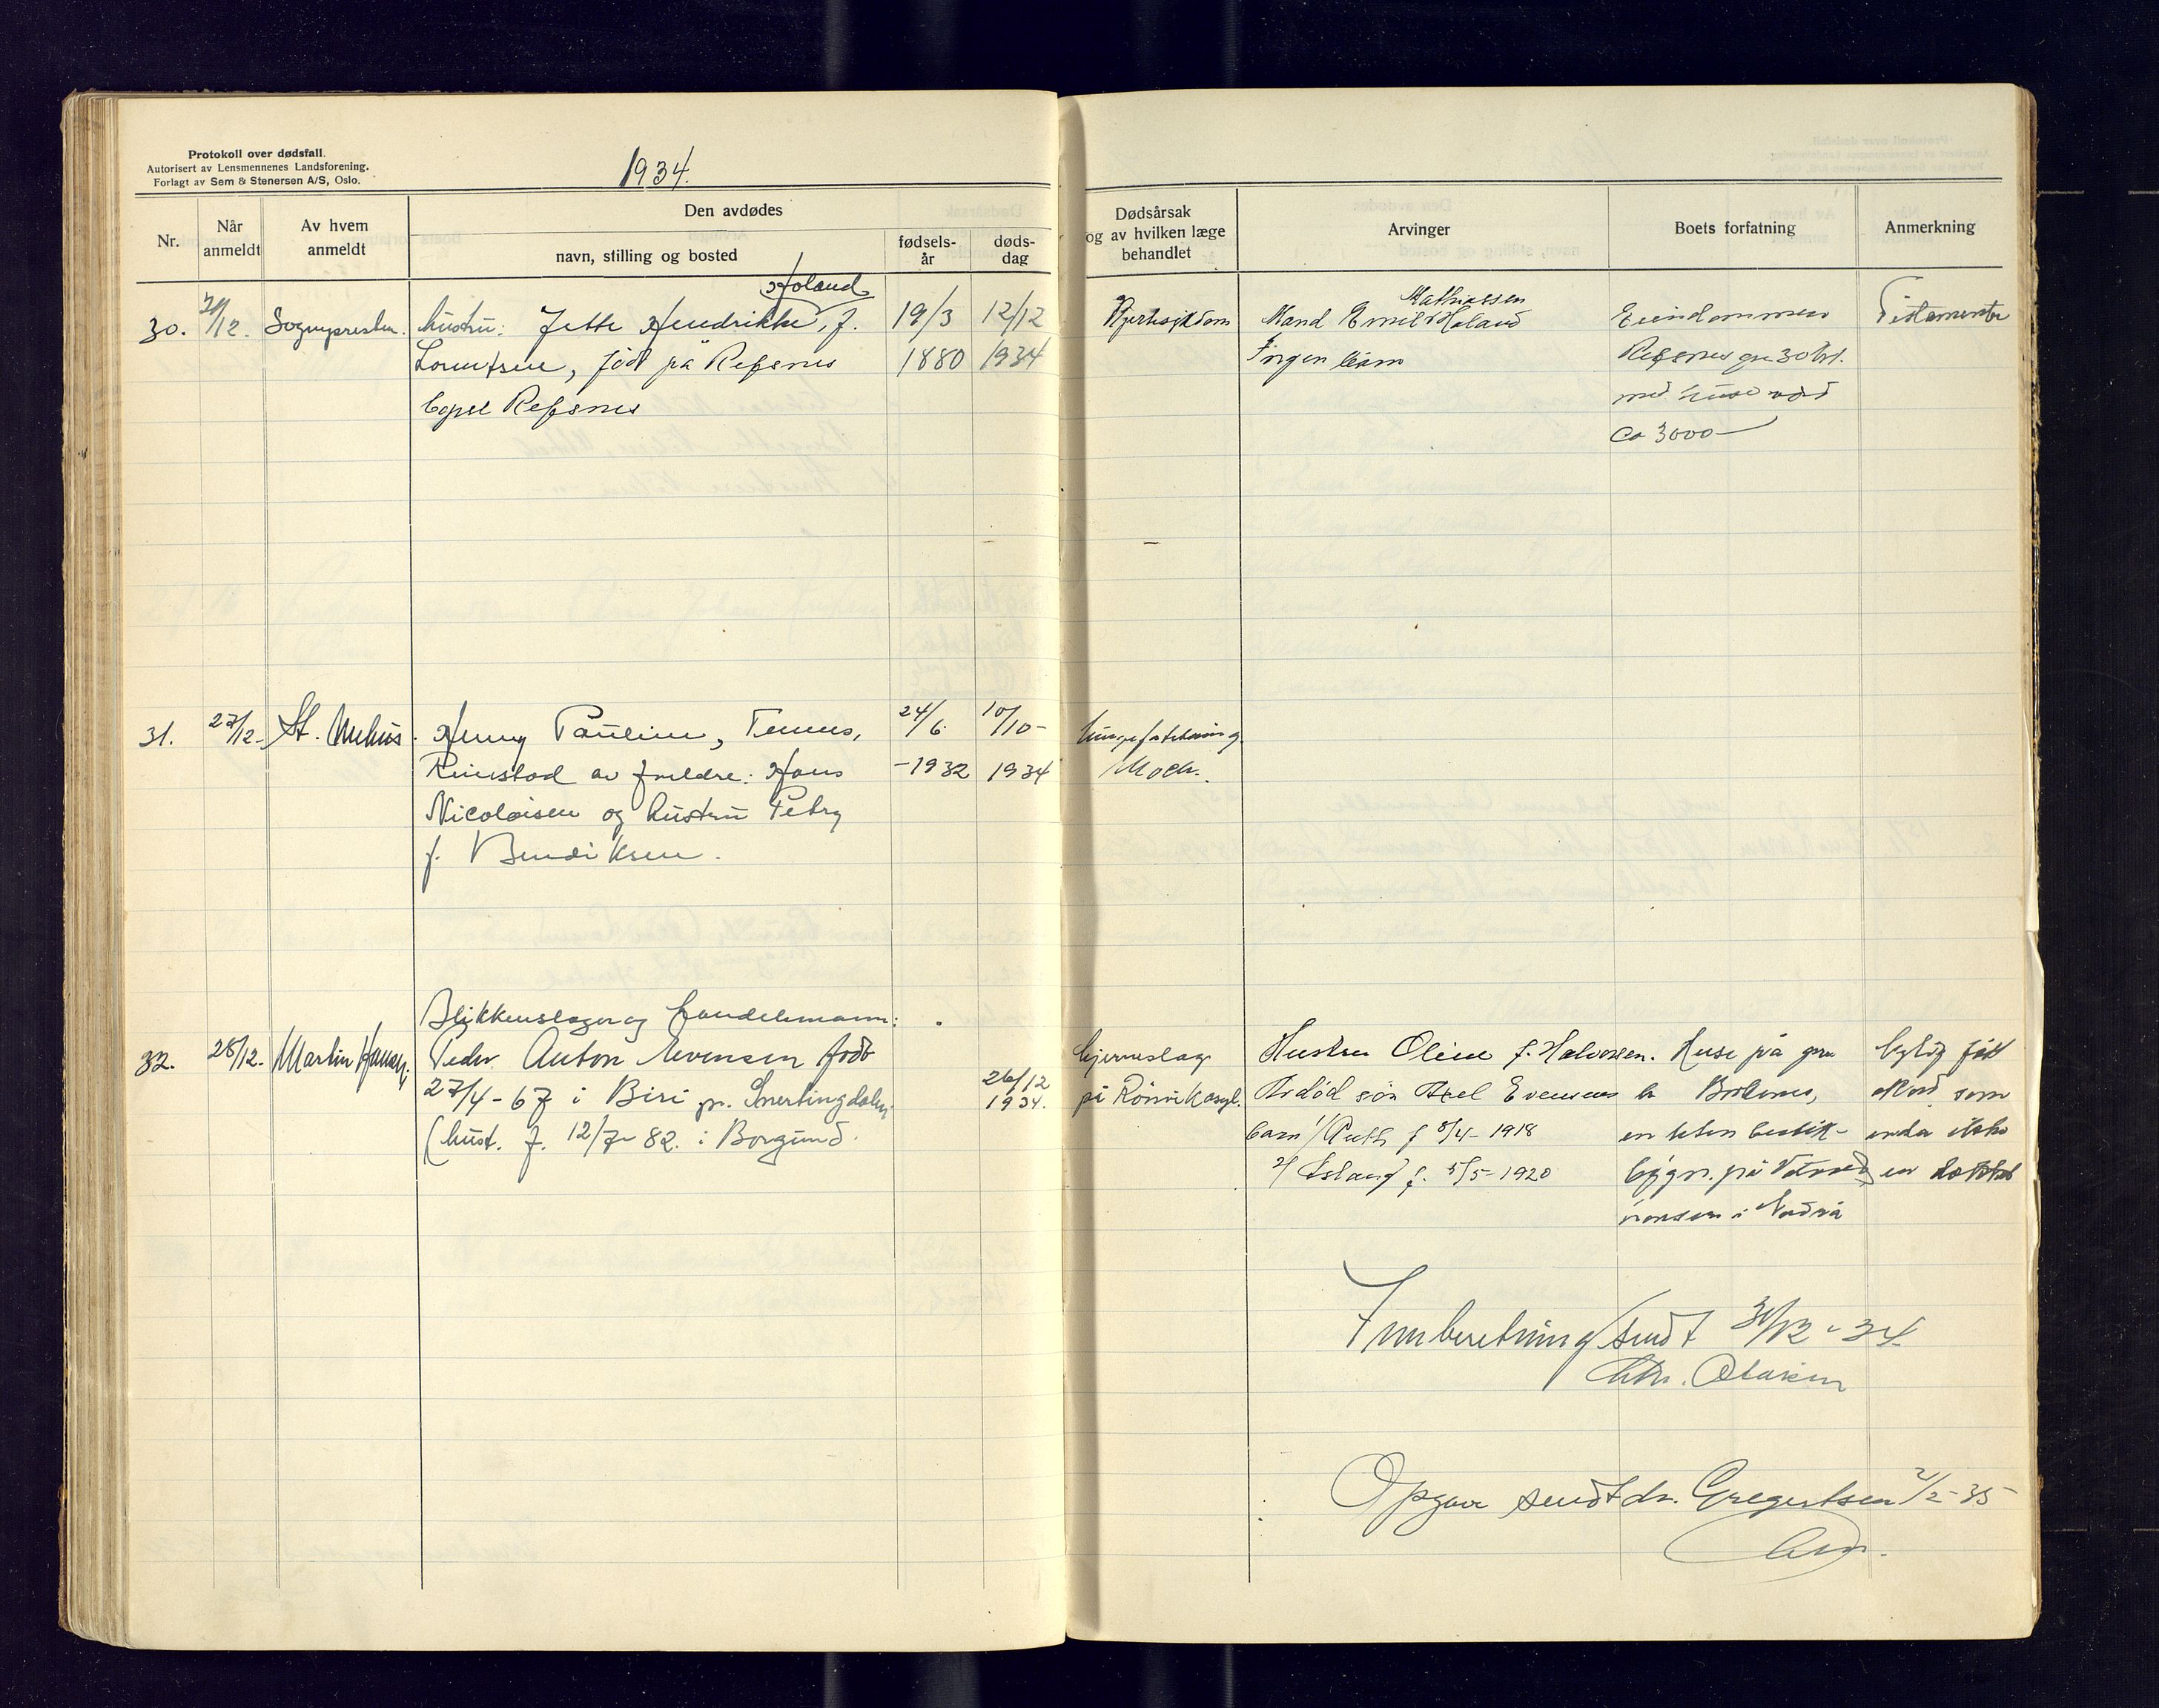 Protokoll over dødsfall.
Autorisert av Lensmennenes Landsforening.
Forlagt av Sem & Stenersen A/S, Oslo.
1934.
Nr.
Når anmeldt
Av hvem anmeldt
Den avdødes
navn, stilling og bosted
fødsels-år
døds-dag
Dødsårsak og av hvilken læge behandlet
Arvinger
Boets forfatning
Anmerkning
30.
/12.
Sognepresten.
Høland
hustru: Jette Hendrikke, f.
Lorentsen, född på Refsnes
bopel Refsnes
19/3
1880
12/12
1934
Hjertesykdom
Mathiassen
Mand Emil Høland
Ingen barn
Eiendommen
Refsnes gn 30 br 1.
med huse verd
Ca 3000-
Testamente
31.
27/12-
St.
Henny Pauline, Temnes,
av foreldre: Hans
Nicolaisen og hustru Petry
f. Bendiksen.
24/6.
-1932
10/10-
1934
lungebetendning.
Moe.
32.
28/12.
Martin Hansen.
Blikkenslager og handelsmann:
Peder Anton Evensen född
27/4-67 i Biri pr. Snertingdalen.
(hust. f. 12/7-82. i Borgund.
26/12
1934.
hjerneslag
på Rönvik asyl.
Hustru Oline f. Halvorsen.
Avdöd sön Axel Evensens
barn 1/ Ruth f 8/4-1918
2/ Aslaug f. 5/5-1920
Huse på grn
en liten
på
i Nordvik
som
enda
en
Innberetning sendt 31/12-34.
Chr. Olaisen
Opgave sendt dr. Gregertsen 2/2-35